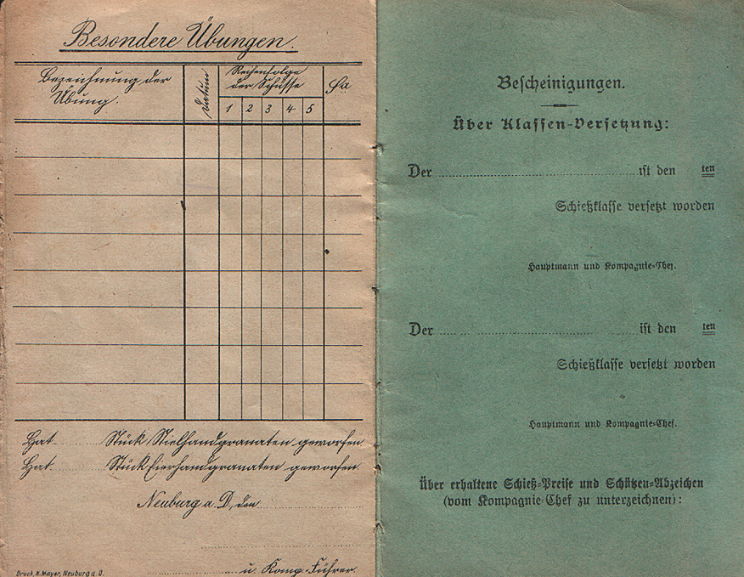 Besondere Übungen.
Bezeichnung der
Übung.
Datum
Reihenfolge
der Schüsse
1 2 3 4 5
Sa
Hat Stück Stielhandgranaten geworfen
Hat Stück Eierhandgranaten geworfen
Neuburg a. D., den
u. Komp. Führer.
Druck. K. Mayer, Neuburg a. D.
Bescheinigungen.
Über Klassen-Versetzung:
Der ist den ten
Schießklasse versetzt worden
Hauptmann und Kompagnie-Chef.
Der ist den ten
Schießklasse versetzt worden
Hauptmann und Kompagnie-Chef.
Über erhaltene Schieß-Preise und Schützen-Abzeichen
(vom Kompagnie-Chef zu unterzeichnen):